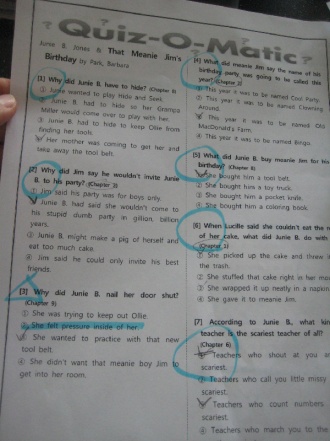 Quiz-O-Matic
Junie B. Jones & That Meanie Jim's
Birthday by Park, Barbara
[1] Why did Junie B. have to hide? (Chapter 8)
① Junie wanted to play Hide and Seek.
② Junie B. had to hide so her Grampa
Miller would come over to play with her.
③ Junie B. had to hide to keep Ollie from
finding her tools.
④ Her mother was coming to get her and
take away the tool belt.
[2] Why did Jim say he wouldn't invite Junie
B. to his party? (Chapter 3)
① Jim said his party was for boys only.
② Junie B. had said she wouldn't come to
his stupid dumb party in gillion, billion
years.
③ Junie B. might make a pig of herself and
eat too much cake.
④ Jim said he could only invite his best
friends.
[3] Why did Junie B. nail her door shut?
(Chapter 8)
① She was trying to keep out Ollie.
② She felt pressure inside of her.
③ She wanted to practice with that new
tool belt.
④ She didn't want that meanie boy Jim to
get into her room.
[4] What did meanie Jim say the name of his
birthday party was going to be called this
year? (Chapter 2)
① This year it was named Cool Party.
② This year it was be named Clowning
Around.
③ This year it was named Old
MacDonald's Farm.
④ This year it was named Bingo.
[5] What did Junie B. buy meanie Jim for his
birthday? (Chapter 8)
① She bought him a tool belt.
② She bought him a toy truck.
③ She bought him a pocket knife.
④ She bought him a coloring book.
[6] When Lucille said she couldn't eat the
of her cake, what did Junie B. do with
(Chapter 1)
① She picked up the cake and threw
the trash.
② She stuffed that cake right in her
③ She wrapped it up neatly in a napkin
④ She gave it to meanie Jim.
[7] According to Junie B., what kind
teacher is the scariest teacher of all?
(Chapter 6)
① Teachers who shout at you
scariest.
② Teachers who call you little missy
scariest.
③ Teachers who count numbers
scariest.
④ Teachers who march you to the